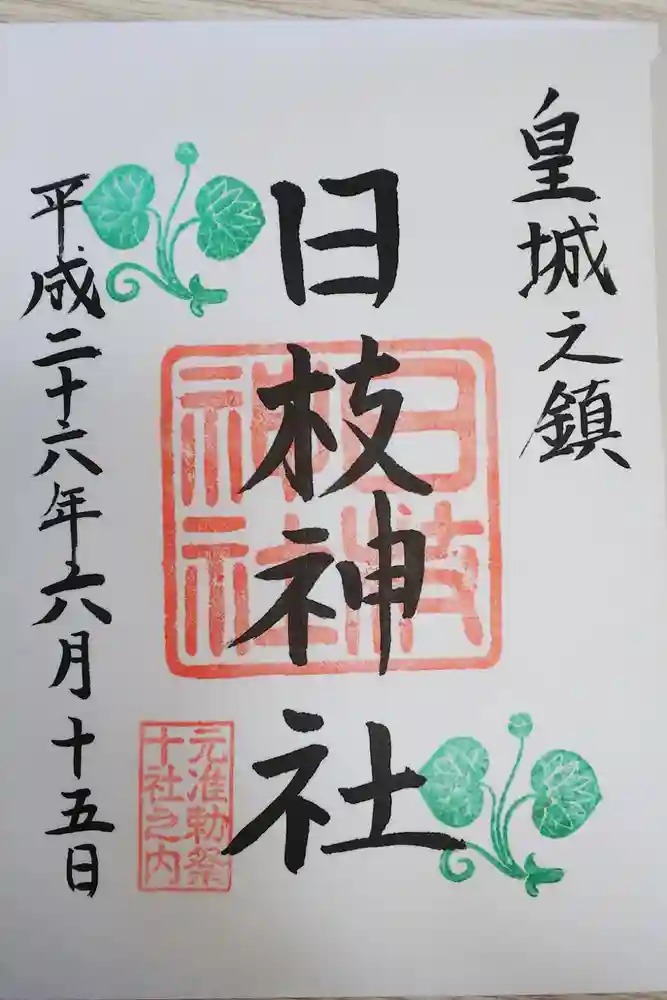 皇城之鎮
日枝神社
日枝
神社
元准勅祭
十社之内
平成二十六年六月十五日